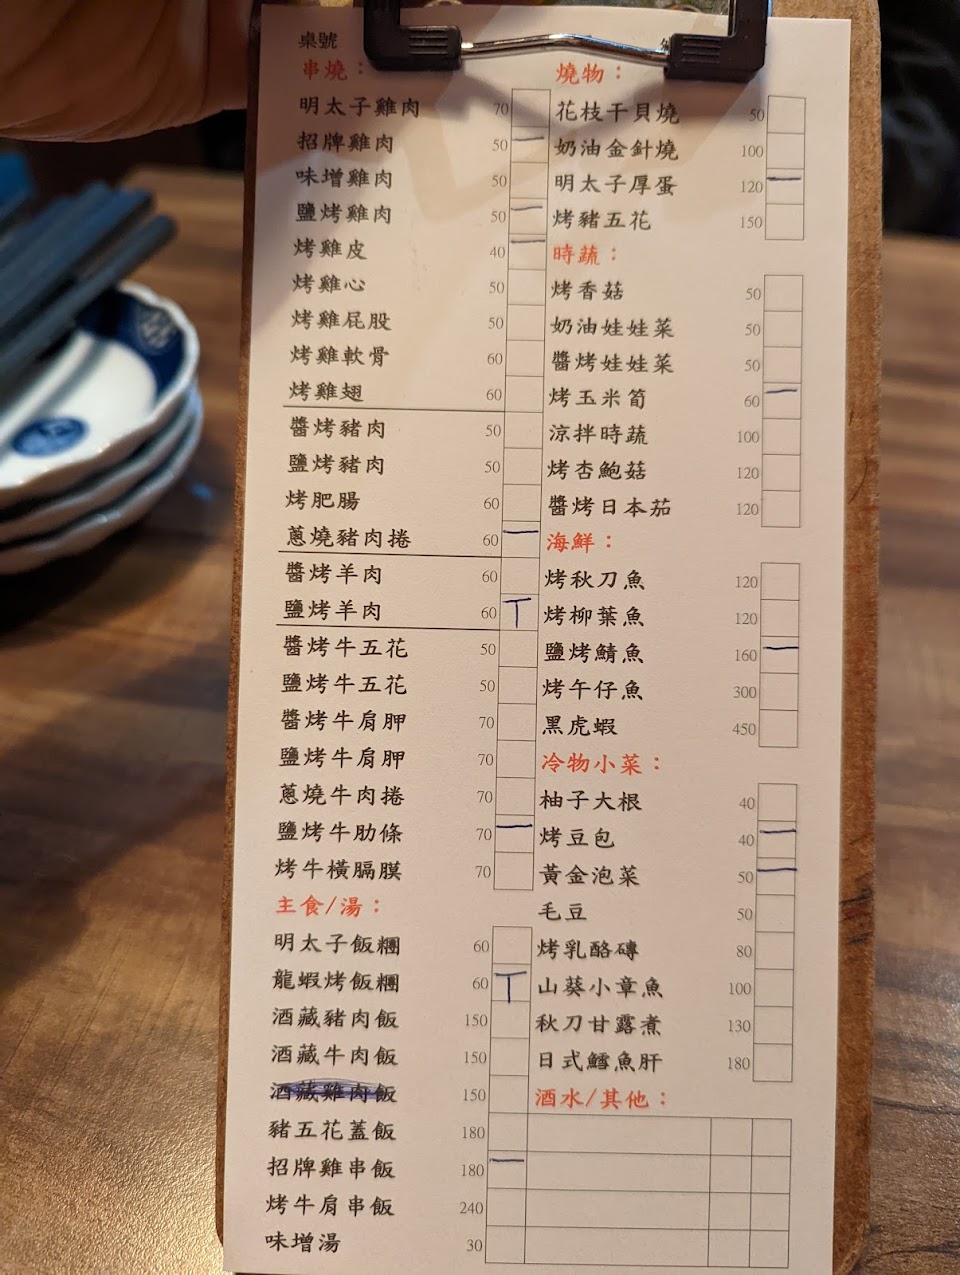 桌號
串燒：
明太子雞肉 70
招牌雞肉 50
味增雞肉 50
鹽烤雞肉 50
烤雞皮 40
烤雞心 50
烤雞屁股 50
烤雞軟骨 60
烤雞翅 60
醬烤豬肉 50
鹽烤豬肉 50
烤肥腸 60
蔥燒豬肉捲 60
醬烤羊肉 60
鹽烤羊肉 60
醬烤牛五花 50
鹽烤牛五花 50
醬烤牛肩胛 70
鹽烤牛肩胛 70
蔥燒牛肉捲 70
鹽烤牛肋條 70
烤牛橫膈膜 70
主食/湯：
明太子飯糰 60
龍蝦烤飯糰 60
酒藏豬肉飯 150
酒藏牛肉飯 150
酒藏雞肉飯 150
豬五花蓋飯 180
招牌雞串飯 180
烤牛肩串飯 240
味增湯 30
燒物：
花枝干貝燒 50
奶油金針燒 100
明太子厚蛋 120
烤豬五花 150
時蔬：
烤香菇 50
奶油娃娃菜 50
醬烤娃娃菜 50
烤玉米筍 60
涼拌時蔬 100
烤杏鮑菇 120
醬烤日本茄 120
海鮮：
烤秋刀魚 120
烤柳葉魚 120
鹽烤鯖魚 160
烤午仔魚 300
黑虎蝦 450
冷物小菜：
柚子大根 40
烤豆包 40
黃金泡菜 50
毛豆 50
烤乳酪磚 80
山葵小章魚 100
秋刀甘露煮 130
日式鱈魚肝 180
酒水/其他：